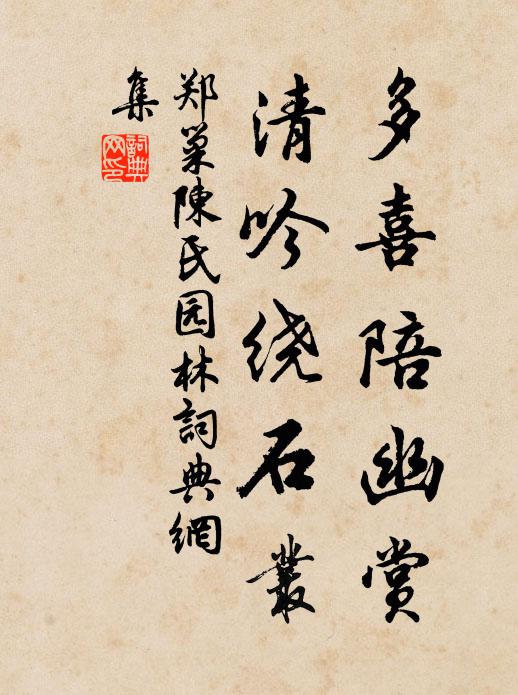 多喜陪幽赏
清吟绕石叢
郑巢陳氏园林詞典網
集
詞典
网印